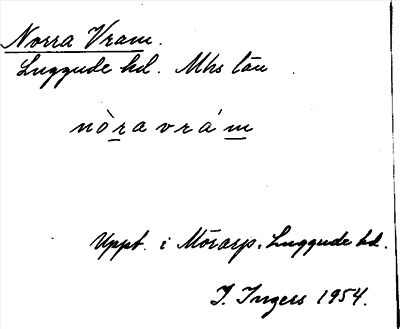 Norra Vram.
Luggude hd. Mhs län
nòravrám
Uppt. i Mörarp, Luggude hd.
I. Ingers 1954.